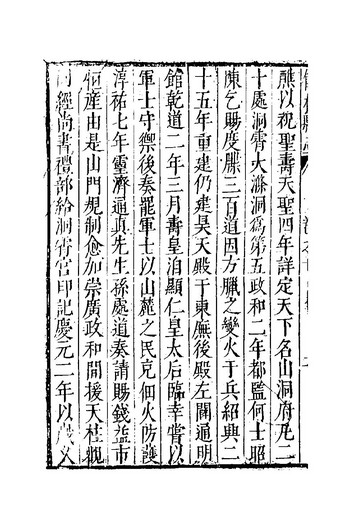 醮以祝聖壽天聖四年詳定天下名山洞府凡二
十處洞霄大滌洞爲第五政和二年都監何士昭
陳乞賜度牒三百道因方臘之變火于兵紹興二
十五年重建仍建昊天殿于東廡後殿左闢通明
館乾道二年三月壽皇泊顯仁皇太后臨幸嘗以
軍士守禦後奏罷軍士以山麓之民克佃火防護
淳祐七年靈濟通真先生孫處道奏請賜錢益市
恒産由是山門規制愈加崇廣政和間援天柱觀
例經尚書禮部給洞霄宫印記慶元二年以歲久